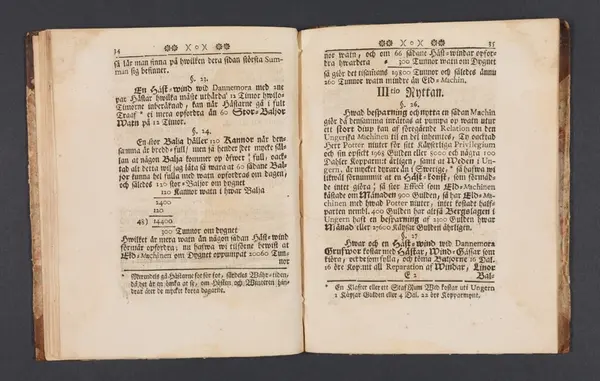 34
så lär man finna på hwilken dera sidan största Sum-
man sig befinner.
§. 23.
En Häst-wind wid Dannemora med 2ne
par Hästar hwilka måste uthärda* 12 Timor hwilo-
Timorne inberäknad, kan när Hästarne gå i fult
Traaf * ei mera opfordra än 60 Stor-Baljor
Watn på 12 Timor.
§. 24.
En stor Balja håller 120 Kannor watn den-
samma är bredd-full; men så hender det mycket säl-
lan at någon Balja kommer op öfwer full, oack-
tad alt detta wil jag låta så wara at 60 sådane Bal-
jor kunna bel fulla med watn opfordras om dagen,
och således 120 stor-Baljor om dygnet
120 Kannor watn i hwar Balja
2400
120
48) 14400
300 Tunnor om dygnet
Hwilket är mera watn än någon sådan Häst-wind
förmår opfordra; nu hafwa wi tilförne bewist at
Eld-Machinen om Dygnet oppumpat 20060 Tun-
nor
* Merendels gå Hästarne fot för fot, särdeles Wåhr-tiden,
då det är ei tänka at se, om Hösten och Winteren hin-
drar äfwen de myckit korta dagarne.
35
nor watn, och om 66 sådane Häst-windar opfor-
dra hwardera 300 Tunnor watn om Dygnet
så giör det tilsamans 19800 Tunnor och således ännu
260 Tunnor watn mindre än Eld-Machin.
III tio Nyttan.
§. 26.
Hwad besparning och nytta en sådan Machin
giör då densamma inrättas at pumpa op watn utur
ett stort diup kan af föregående Relation om den
Ungerska Machinen til en del inhemtas, Ty oacktad
Herr Potter niuter för sit Käyserliga Privilegium
och sin opsikt 1565 Gulden eller 5000 och några 100
Dahler Kopparmt årligen, samt at Weden i Un-
gern, är mycket dyrare än i Swerige, * så hafwa wi
likwäl förnummit at en Häst-konst, som förmåd-
de intet giöra i så stor Effect som Eld-Machinen
kåstade om Månaden 900 Gulden, så har Eld-Ma-
chinen med hwad Potter niuter, intet kostadt half-
parten nembl. 400 Gulden har altså Bergslagen i
Ungern haft en besparning af 2300 Gulden hwar
Månad eller 27600 Käyser Gulden åhrligen.
§. 27
Hwar och en Häst-wind wid Dannemora
Grufwor kostar med Hästar, Wind-Gässar som
kiöra, det de som fylla, och töma Baljorne 16 Dal.
16 öre Kop:mt all Reparation af Windar, Linor
E 2 Bal-
* En Klafter eller ett Staf Rum Wed kostar uti Ungern
1 Käyser Gulden eller 4 Dal. 22 öre Kopparmynt.